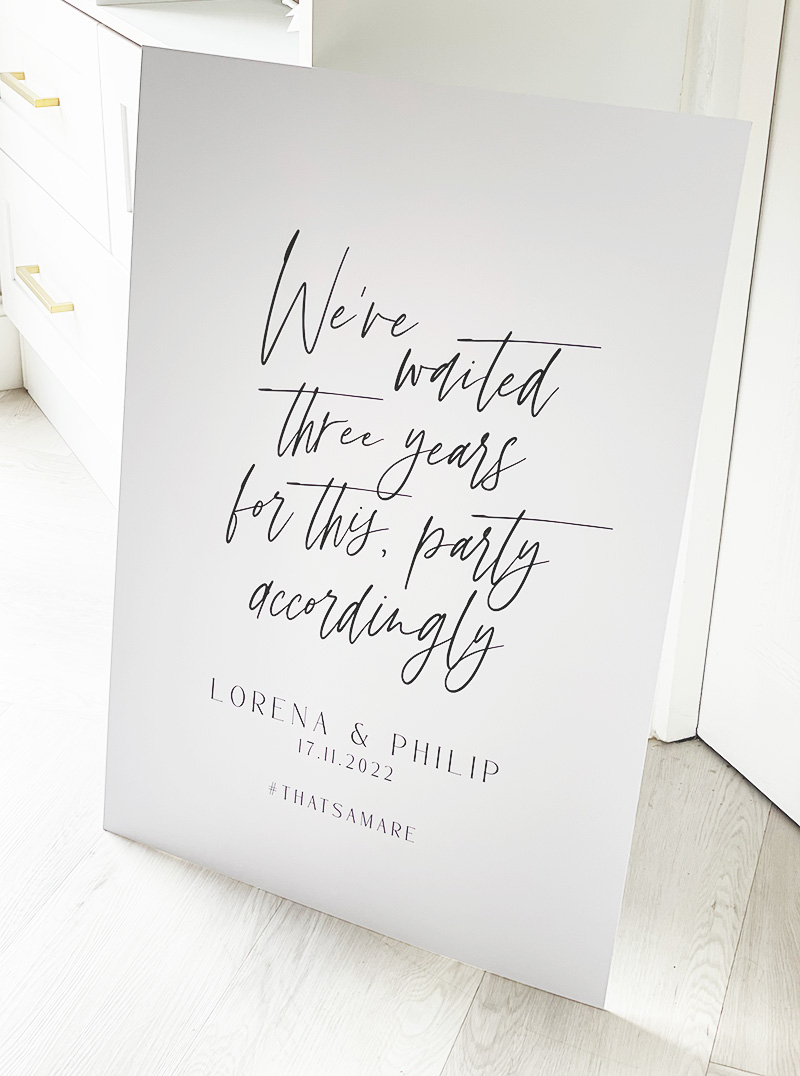 We've
waited
three years
for this, party
accordingly
LORENA & PHILIP
17.11.2022
#THATSAMARE